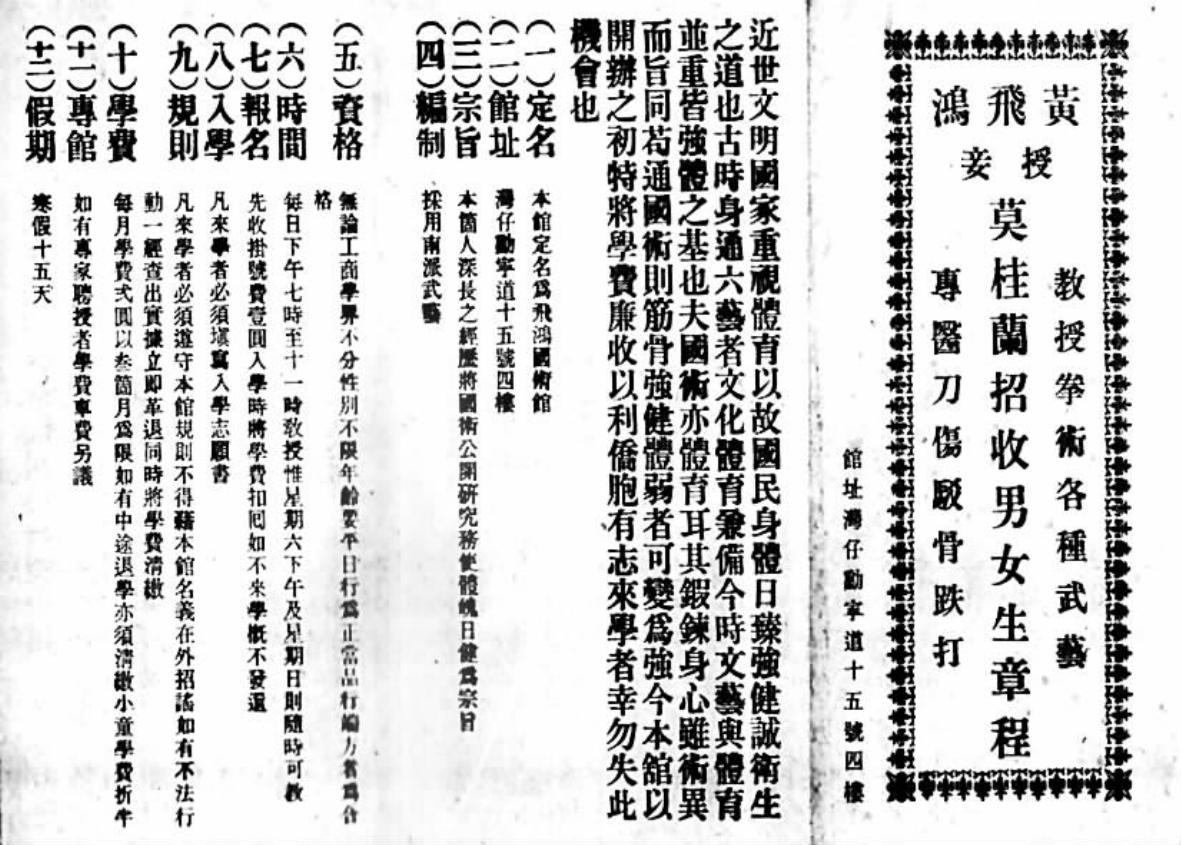 黃飛鴻
授妾
莫桂蘭招收男女生章程
教授拳術各種武藝
專醫刀傷駁骨跌打
館址灣仔勳寧道十五號四樓
近世文明國家重視體育以故國民身體日臻強健誠衛生
之道也古時身通六藝者文化體育兼備今時文藝與體育
並重皆強體之基也夫國術亦體育耳其鍜鍊身心雖術異
而旨同苟通國術則筋骨強健體弱者可變爲強今本舘以
開辦之初特將學費廉收以利僑胞有志來學者幸勿失此
機會也
(一)定名 本館定名爲飛鴻國術館
(二)館址 灣仔勳寧道十五號四樓
(三)宗旨 本箇人深長之經歷將國術公開研究務使體魄日健爲宗旨
(四)編制 採用南派武藝
(五)資格 無論工商學界不分性別不限年齡要平日行爲正當品行端方者爲合
格
(六)時間 每日下午七時至十一時敎授惟星期六下午及星期日則隨時可敎
(七)報名 先收掛號費壹圓入學時將學費扣囘如不來學概不發還
(八)入學 凡來學者必須塡寫入學志願書
(九)規則 凡來學者必須遵守本館規則不得藉本館名義在外招謠如有不法行
動一經查出實據立即革退同時將學費清繳
(十)學費 每月學費弍圓以叁箇月爲限如有中途退學亦須清繳小童學費折半
(十一)專館 如有專家聘授者學費車費另議
(十二)假期 寒假十五天